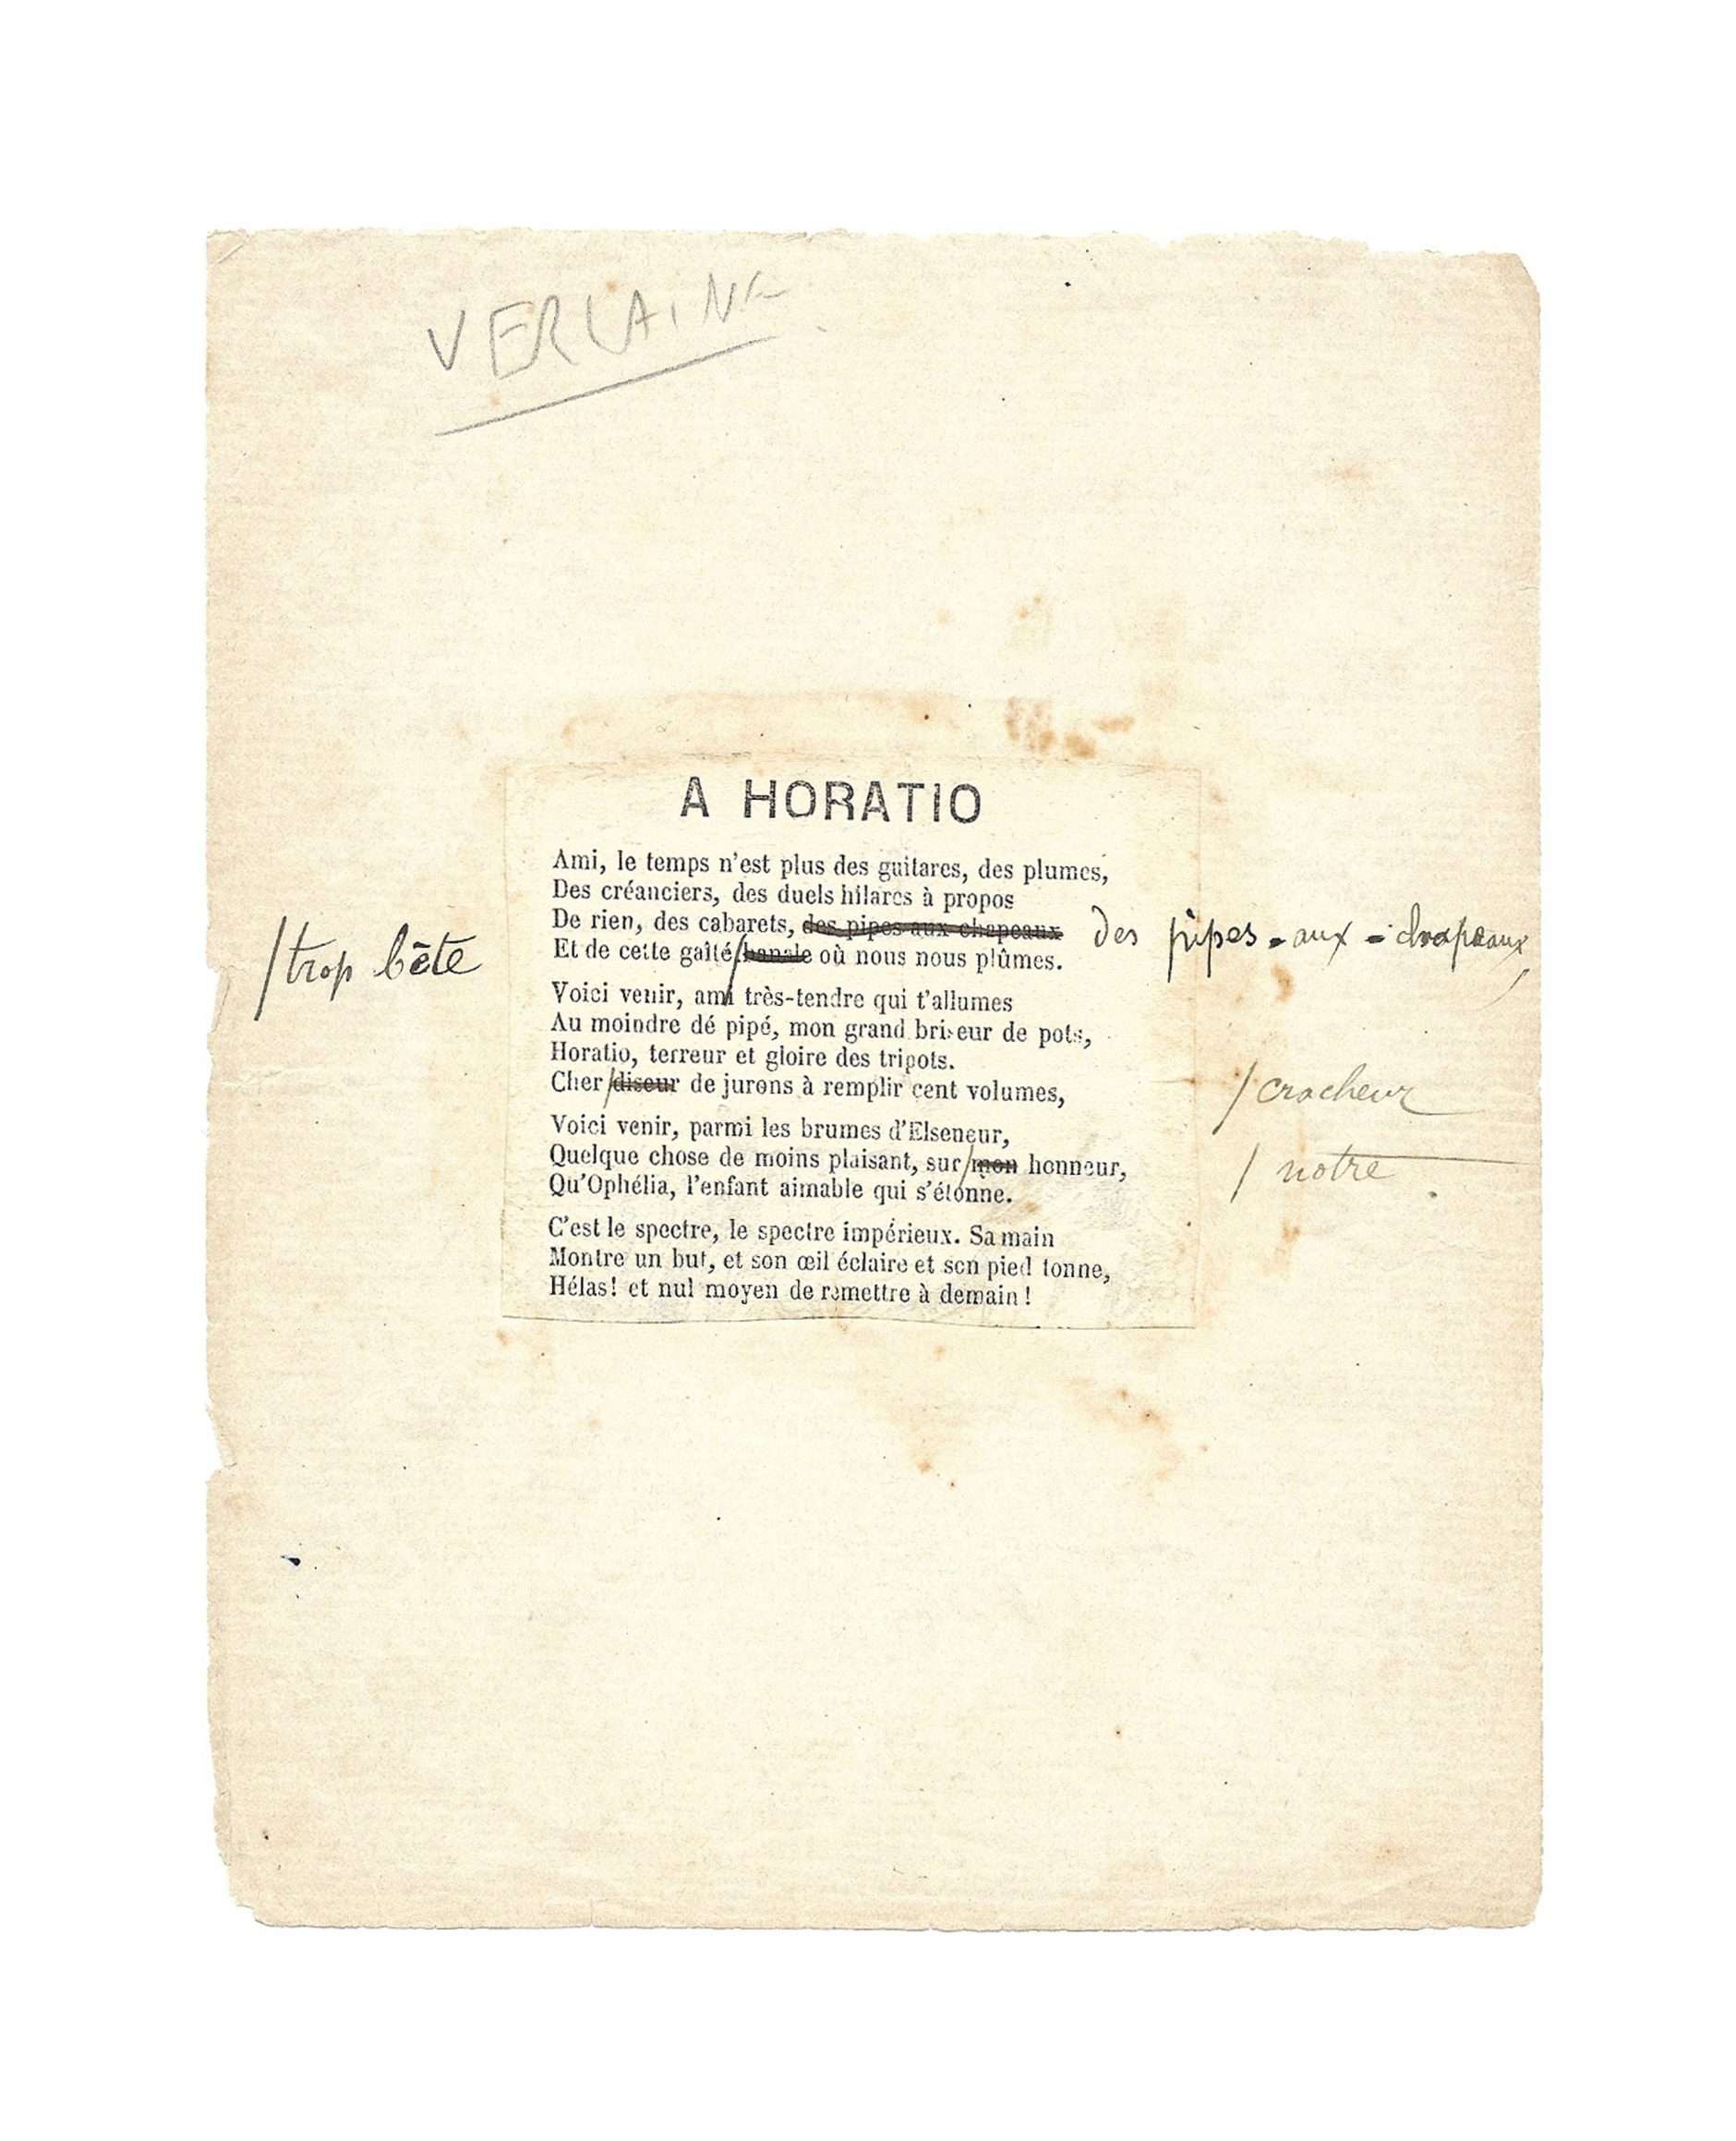 VERLAINE
A HORATIO
Ami, le temps n'est plus des guitares, des plumes,
Des créanciers, des duels hilares à propos
De rien, des cabarets, des pipes aux chapeaux des pipes-aux-chapeaux
/trop bête Et de cette gaîté/banale où nous nous plûmes.
Voici venir, ami très-tendre qui t'allumes
Au moindre dé pipé, mon grand briseur de pots,
Horatio, terreur et gloire des tripots.
Cher/diseur de jurons à remplir cent volumes, /cracheur
Voici venir, parmi les brumes d'Elseneur,
Quelque chose de moins plaisant, sur/mon honneur, / notre
Qu'Ophélia, l'enfant aimable qui s'étonne.
C'est le spectre, le spectre impérieux. Sa main
Montre un but, et son œil éclaire et son pied tonne,
Hélas! et nul moyen de remettre à demain!